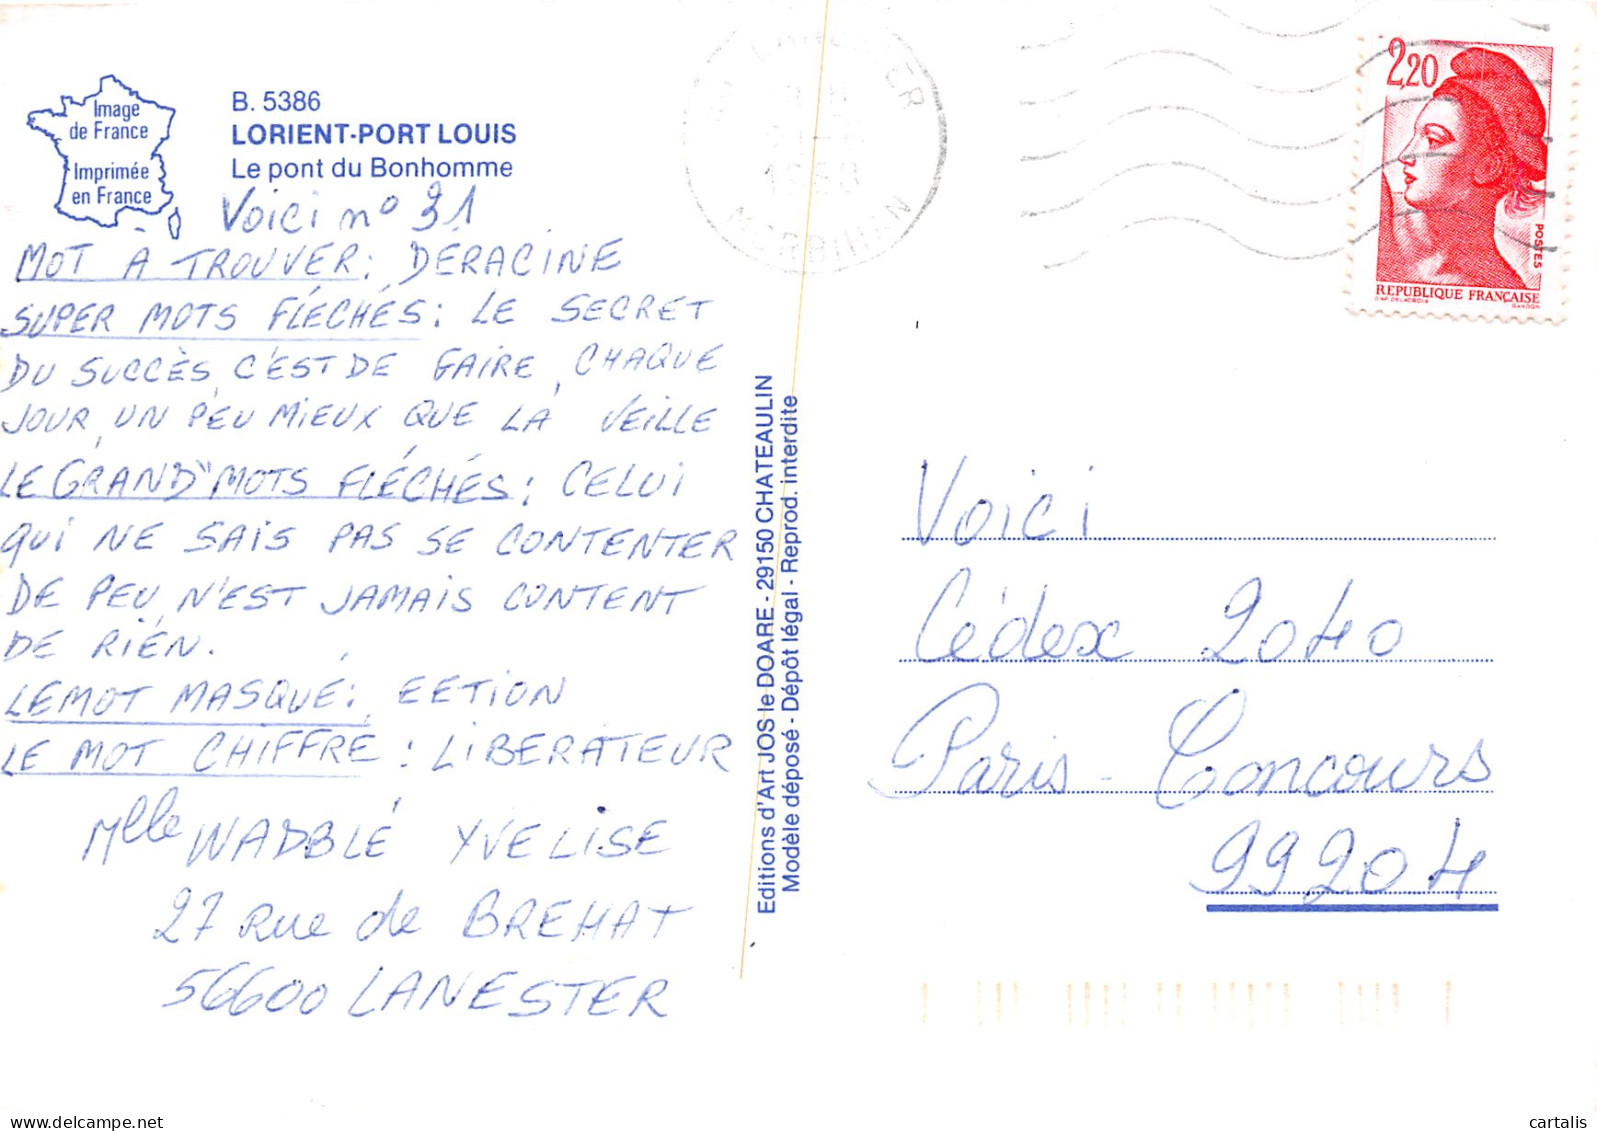 Image
de France
Imprimée
en France
B. 5386
LORIENT-PORT LOUIS
Le pont du Bonhomme
Voici n° 31
MOT À TROUVER : DERACINE
SUPER MOTS FLÉCHÉS : LE SECRET
DU SUCCÈS, C'EST DE FAIRE, CHAQUE
JOUR, UN PEU MIEUX QUE LA VEILLE
LE GRAND "MOTS FLÉCHÉS : CELUI
QUI NE SAIS PAS SE CONTENTER
DE PEU, N'EST JAMAIS CONTENT
DE RIEN.
LE MOT MASQUÉ : EETION
LE MOT CHIFFRE : LIBERATEUR
Mlle WADBLÉ YVELISE
27 Rue de BREHAT
56600 LANESTER
Editions d'Art JOS le DOARE - 29150 CHATEAULIN
Modèle déposé - Dépôt légal - Reprod. interdite
MORBIHAN
2,20
POSTES
REPUBLIQUE FRANÇAISE
D'AP. DELACROIX GANDON
Voici
Cédex 2040
Paris - Concours
99204
cartalis